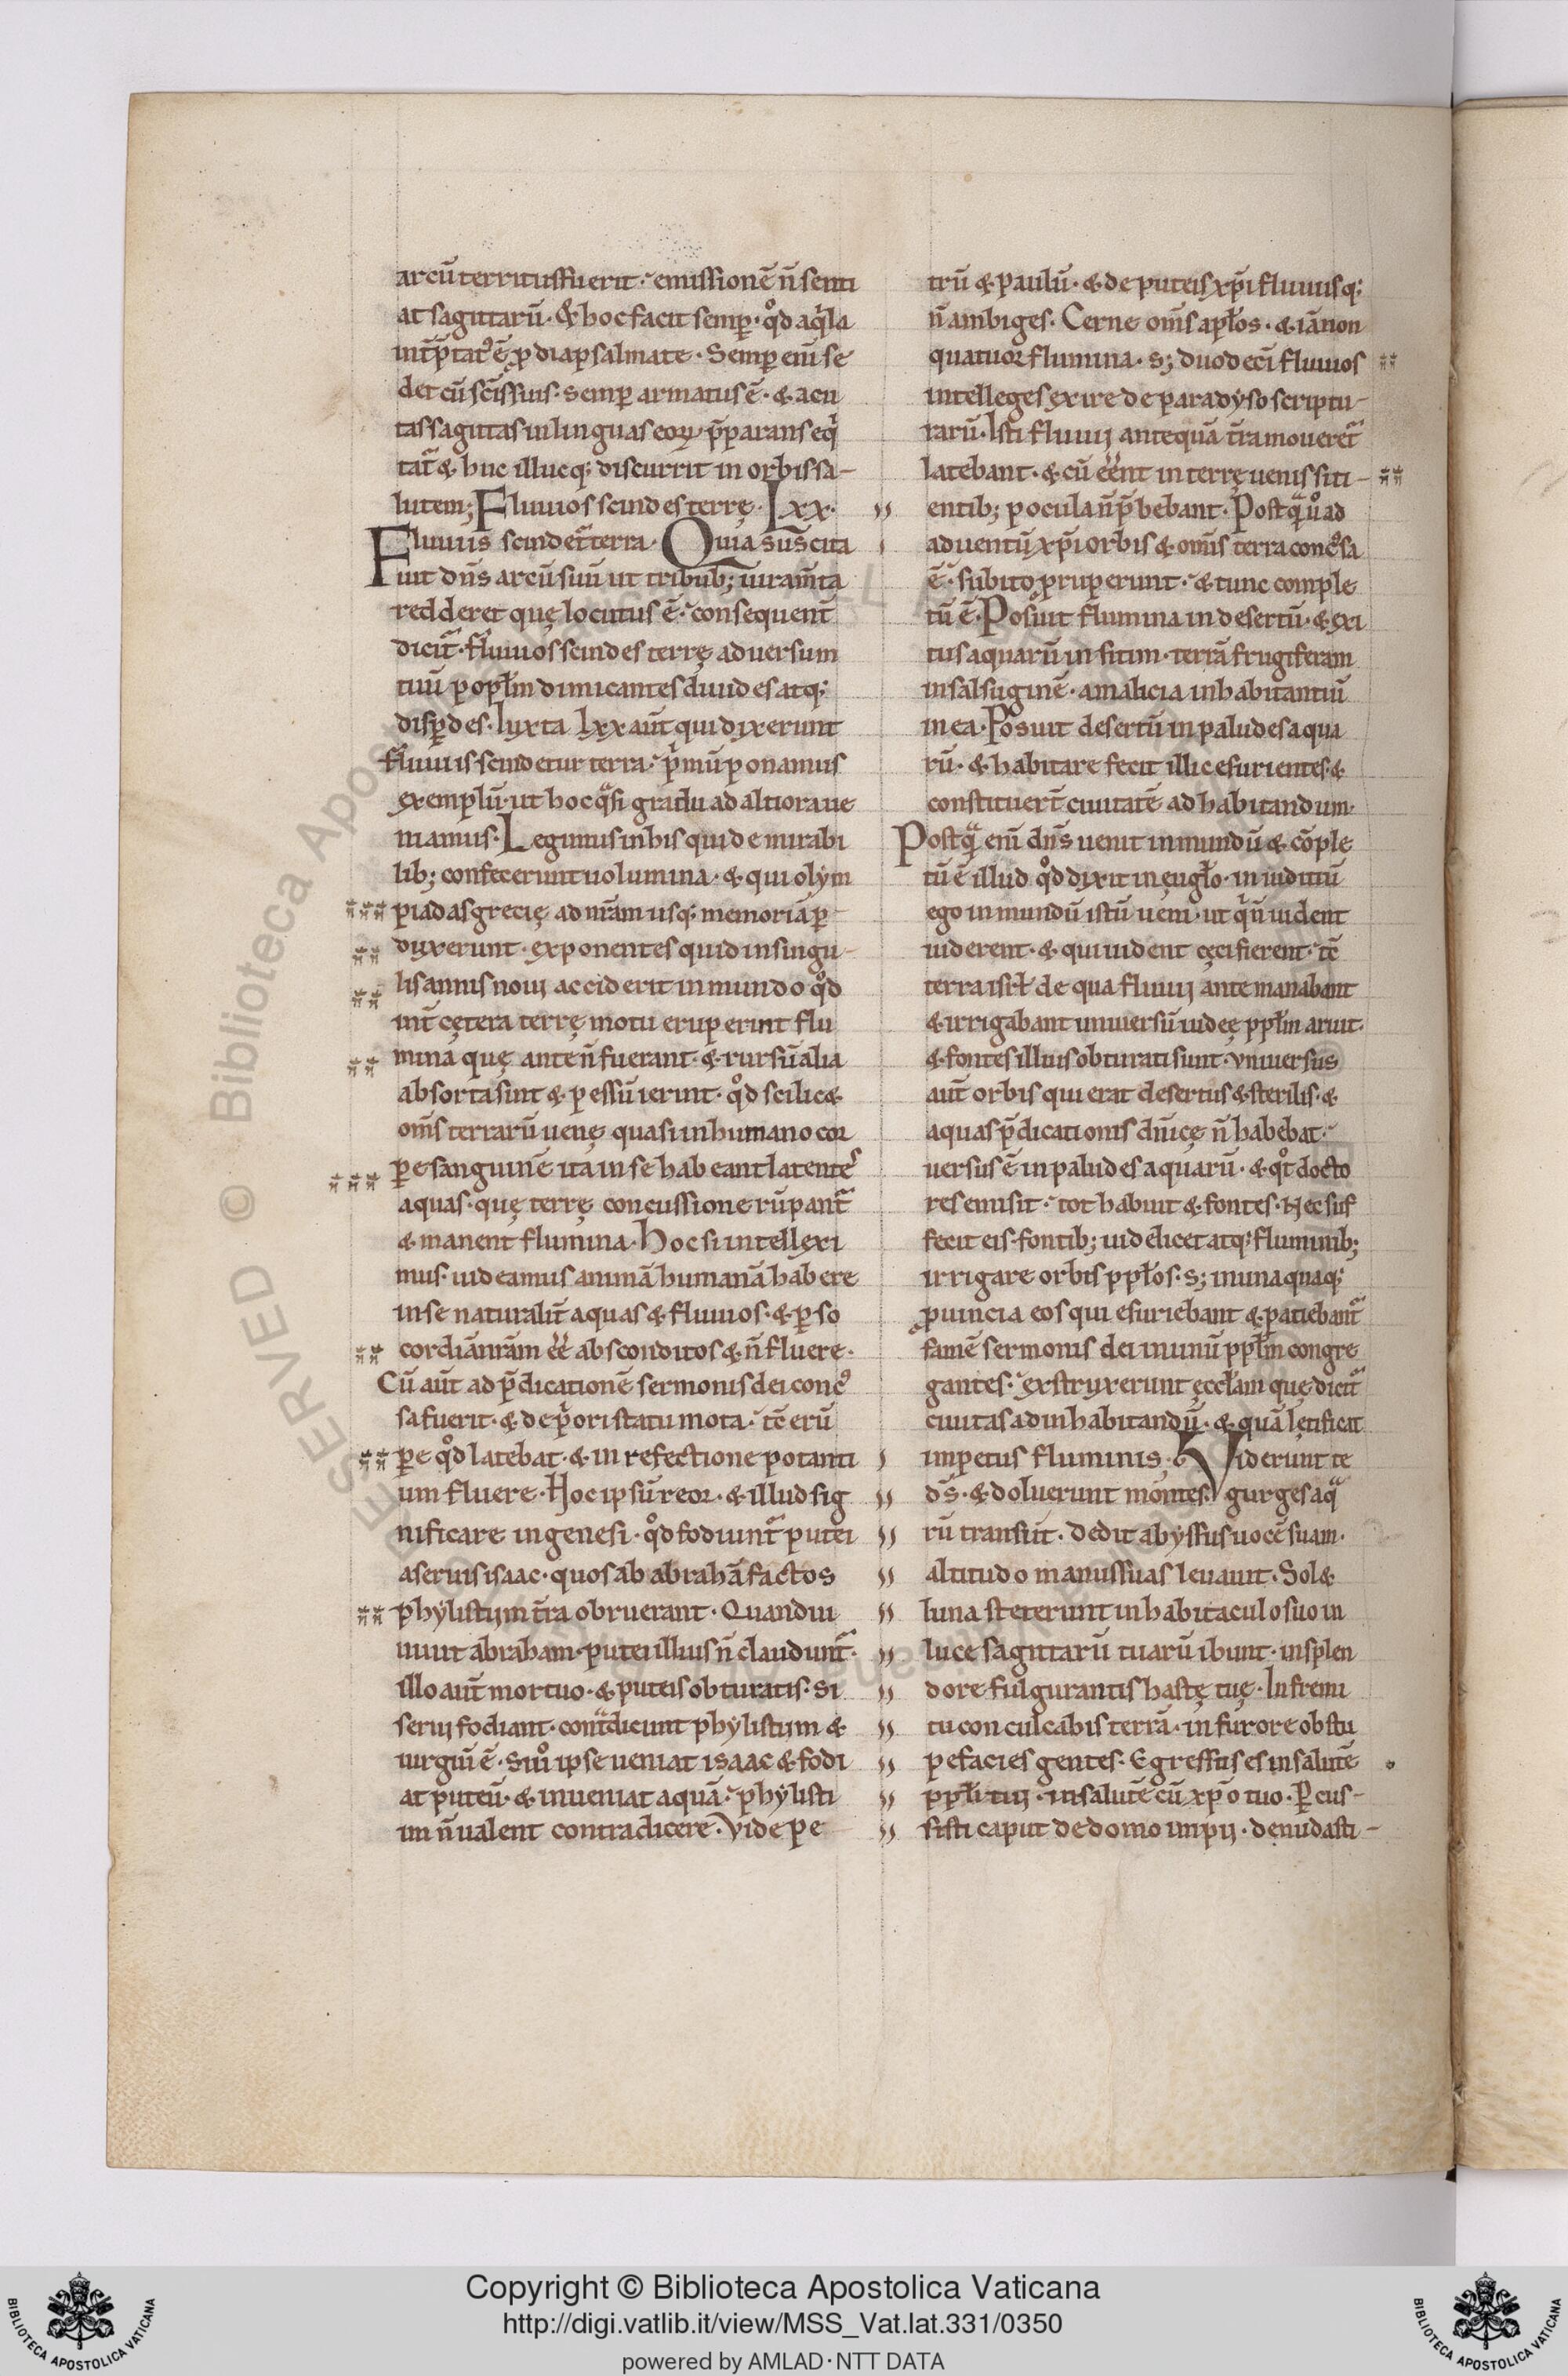 arcū territus fuerit · emissionē n̄ senti
at sagittarū · & hoc facit semper · qd̊ aqͥla
int̄p̄tat᷒ ē p diapsalmate · Semꝑ eni se
det cū sc̄is suis · semꝑ armatus ē · & acu
tas sagittas in linguas eoꝝ p̄parans eqͥ
tat᷒ & huc illucq; discurrit in orbis sa-
lutem; Fluuios scindes terrę · Lxx·
Fluuiis scindet᷒ terra · Quia suscita
uit dn̄s arcū suū ut tribub; iuram̄ta
redderet quę locutus ē · consequent̄
dicit᷒ · fluuios scindes terrę aduersum
tuū popl̄m dimicantes diuides atq;
disꝑdes · Iuxta lxx aut̄ qui dixerunt
fluuiis scindetur terra · pͥmū ponamus
exemplū · ut hoc qͣsi gradu ad altiora ue
niamus · Legimus in his qui de mirabi
lib; confecerunt uolumina · & qui olym
piadas grecię ad nr̄am usq; memoriā ꝑ-
duxerunt · exponentes quid in singu-
lis annis noui acciderit in mundo qd̊
int̄ cętera terrę motu eruperint flu
mina quę ante n̄ fuerant · & rursū alia
absorta sint & pessū ierint · qd̊ scilic&
om̄s terrarū uenę quasi in humano cor
pe sanguinē ita in se habeant latentes
aquas · quę terrę concussione rūpant᷒
& manent flumina · Hoc si intellexi
mus · uideamus animā humanā habere
in se naturalit̄ aquas & fluuios · & ꝑ so
cordiā nr̄am ēē absconditos & n̄ fluere ·
Cū aut̄ ad p̄dicationē sermonis dei conc᷒
sa fuerit · & de pͥori statu mota · tē eru
pe qd̊ latebat · & in refectione potanti
um fluere · Hoc ipsū reor · & illud sig
nificare in genesi · qd̊ fodiunt᷒ putei
a seruis isaac · quos ab abrahā factos
phylistijm t̄ra obruerant · Quandiu
uiuit abraham · putei illius n̄ claudunt᷒ ·
illo aut̄ mortuo · & puteis obturatis · si
serui fodiant · cont̄dicunt phylistiim &
iurgiū ē · Sin̊ ipse ueniat isaac & fodi
at puteū · & inueniat aquā · phylisti
im n̄ ualent contradicere · Vide pe
trū & paulū · & de puteis xp̄i fluuiisq;
n̄ ambiges · Cerne om̄s apl̄os · & iā non
quatuor flumina · s; duodecī fluuios
intelleges exire de paradyso scriptu-
rarū · Isti fluuij antequā t̄ra moueret᷒
latebant · & cū ēēnt in terrę uenis siti-
entib; pocula n̄ p̄bebant · Postqͣ ů ad
aduentū xp̄i orbis & om̄is terra conc᷒sa
ē · subito pruperunt · & tunc comple
tū ē · Posuit flumina in desertū · & exi
tus aquarū in sitim · terrā frugiferam
in salsuginē · a malicia inhabitantiū
in ea · Posuit desertū in paludes aqua
rū · & habitare fecit illic esurientes · &
constituer̄t ciuitatē ad habitandum ·
Postqͣ eni dn̄s uenit in mundū & cōple
tū ē illud qd̊ dixit in eugl̄o · in iuditiū
ego in mundū istū ueni · ut qͥ n̄ uident
uiderent · & qui uident cęci fierent · tē
terra isrl̄ de qua fluuij ante manabant
& irrigabant uniuersū iudeę ppl̄m aruit ·
& fontes illius obturati sunt · Vniuersus
aut̄ orbis qui erat desertus & sterilis · &
aquas p̄dicationis dn̄icę n̄ habebat ·
uersus ē in paludes aquarū · & qt̊ docto
res emisit · tot habuit & fontes · Nec suf
fecit eis fontib; uidelicet atq; fluminib;
irrigare orbis ppl̄os · s; in unaquaq;
puincia eos qui esuriebant & patiebant᷒
famē sermonis dei in unū ppl̄m congre
gantes · exstruxerunt ęccl̄am quę dicit᷒
ciuitas ad inhabitandū · & quā lętificat
impetus fluminis · Viderunt te
ds̄ · & doluerunt montes · gurges aqͣ
rū transiit · dedit abyssus uocē suam ·
altitudo manus suas leuauit · Sol &
luna steterunt in habitaculo suo in
luce sagittarū tuarū ibunt · in splen
dore fulgurantis hastę tuę · In fremi
tu conculcabis terrā · in furore obstu
pefacies gentes · Egressus es in salutē
ppl̄i tui · in salutē cū xp̄o tuo · Percus-
sisti caput de domo impij · denudasti-
Copyright © Biblioteca Apostolica Vaticana
http://digi.vatlib.it/view/MSS_Vat.lat.331/0350
powered by AMLAD · NTT DATA
BIBLIOTECA APOSTOLICA VATICANA
BIBLIOTECA APOSTOLICA VATICANA